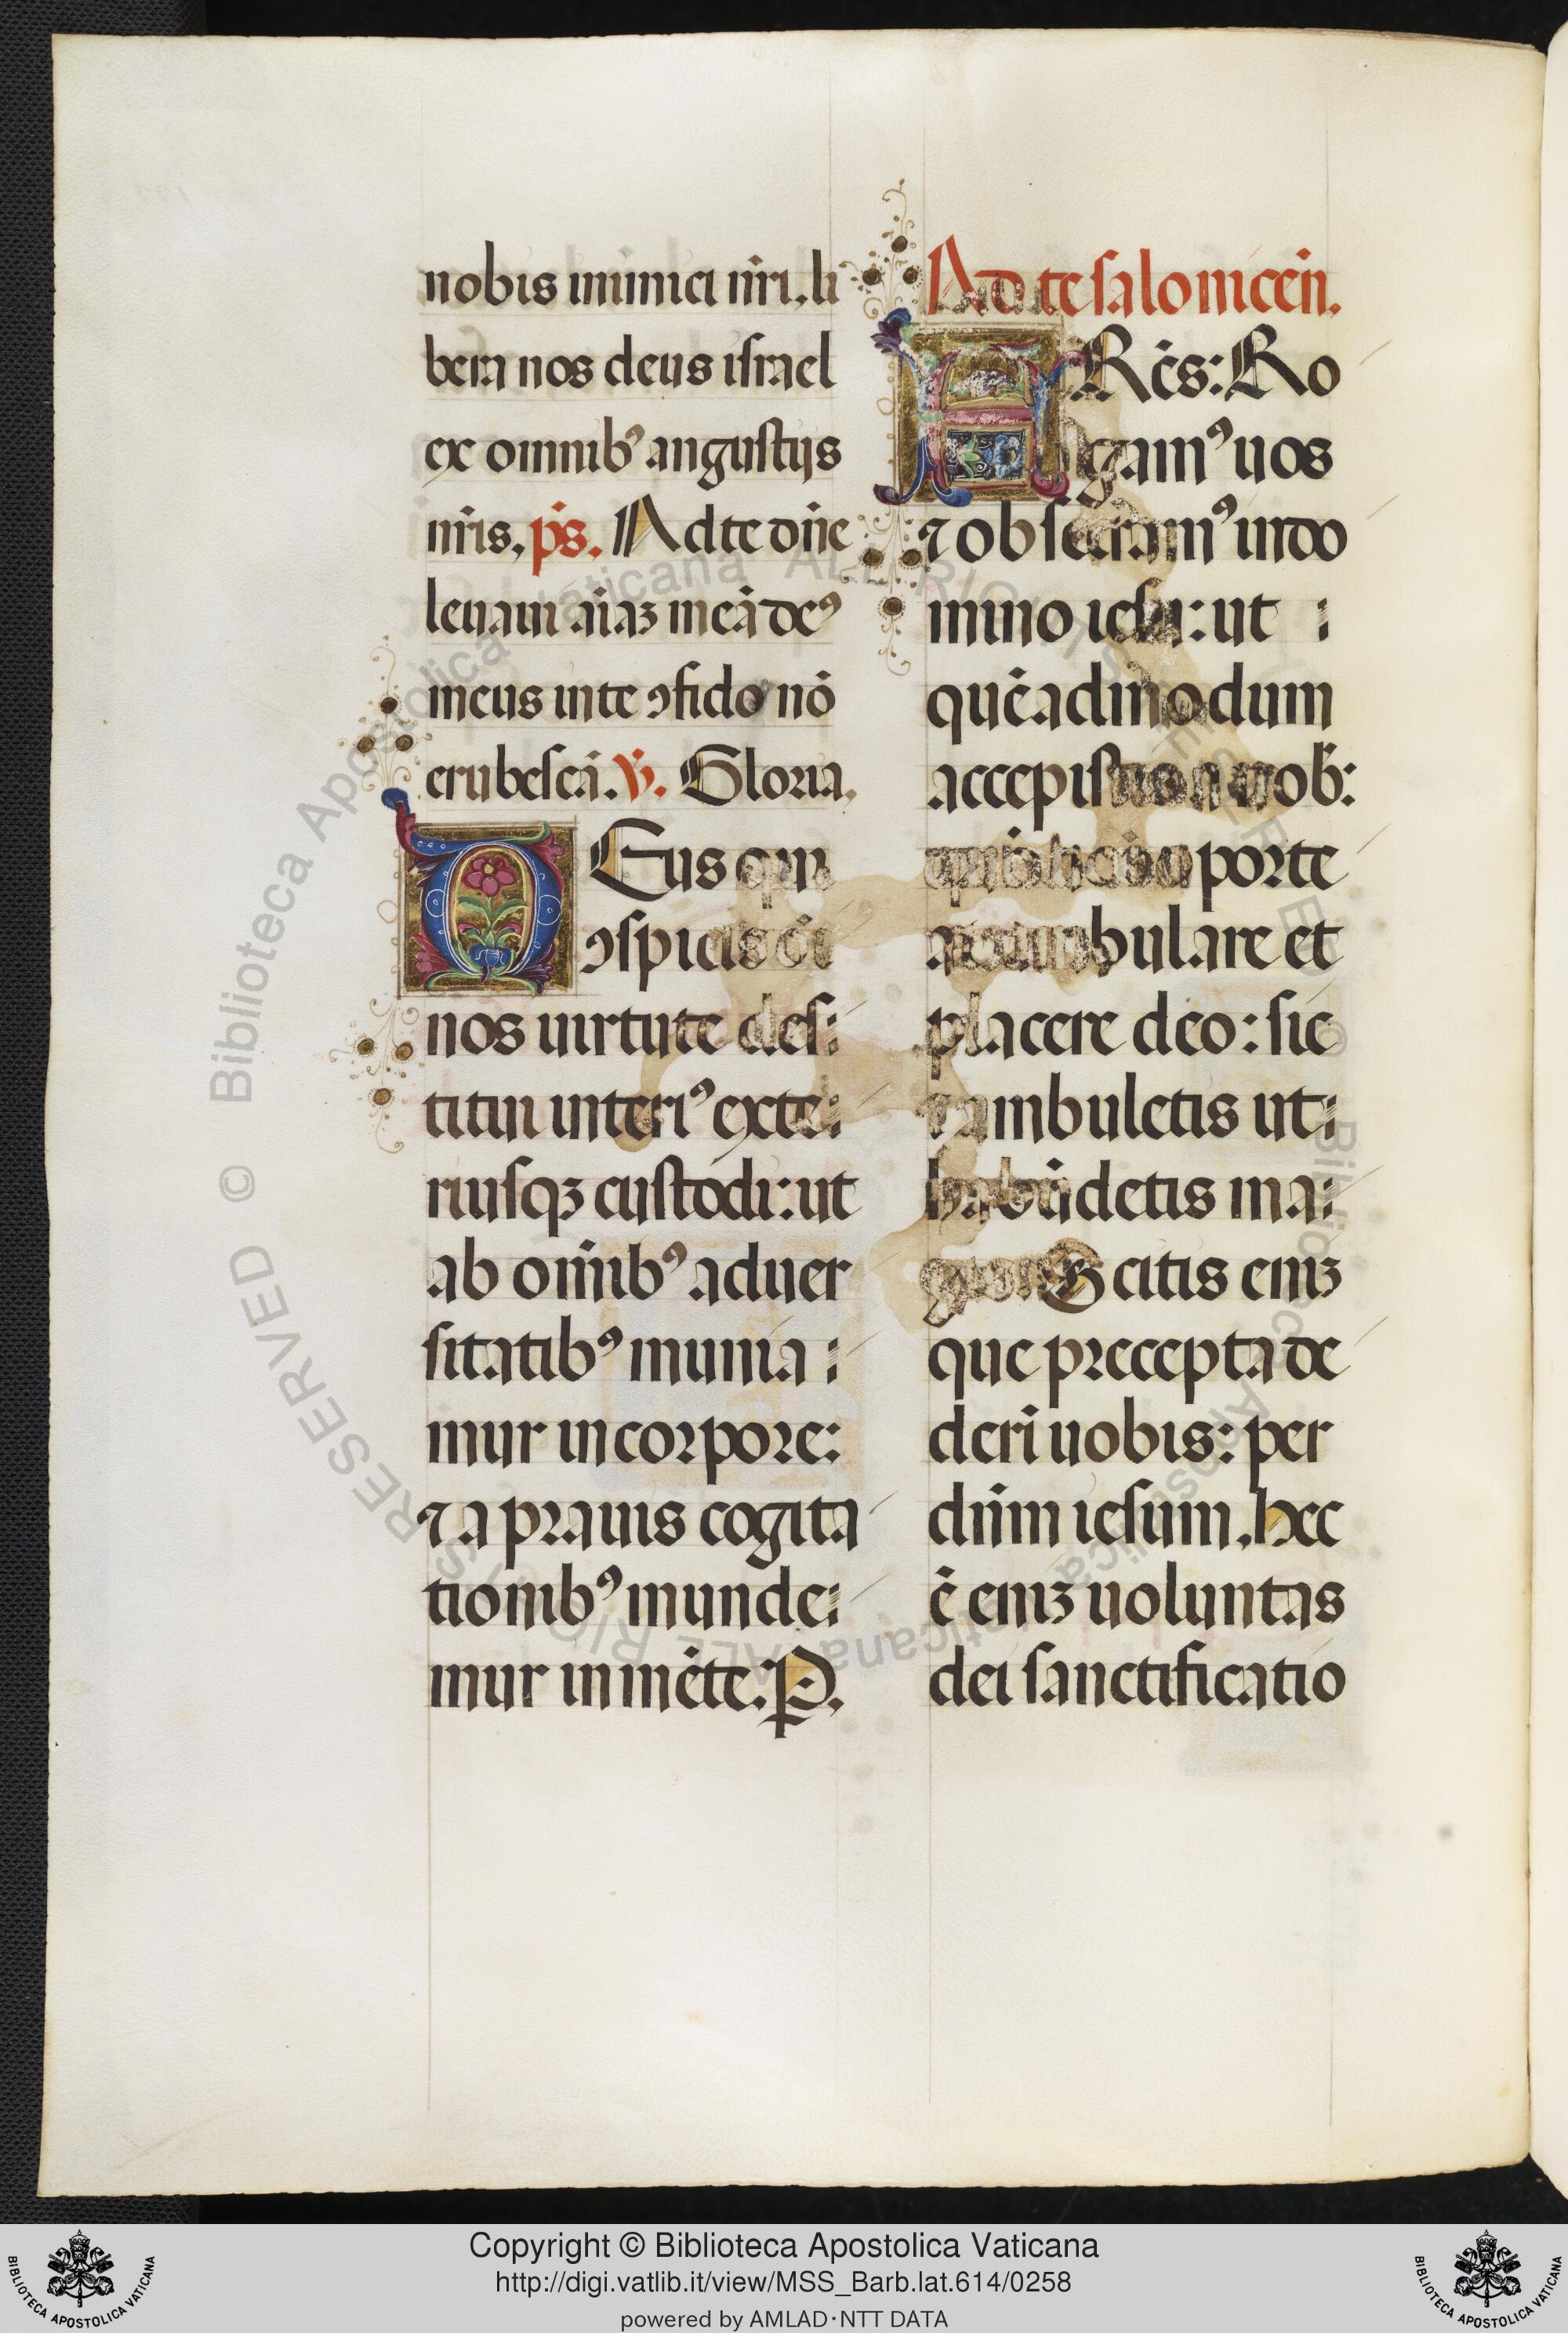 nobis inimici nr̄i. li
bera nos deus israel
ex omnibꝰ angustijs
nr̄is. ps̄. Ad te dn̄e
leuaui aīaʒ meā deꝰ
meus in te ꝯfido nō
erubescā. V̄. Gloria.
DEus qui
ꝯspicis
nos uirtute des⁝
titui interiꝰ exte⁝
riusqʒ custodi: ut
ab om̄ibꝰ aduer
sitatibꝰ munia⁝
mur in corpore:
⁊ a prauis cogita
tionibꝰ munde⁝
mur in mēte. P.
Ad tesalonicen̄.
FRēs: Ro
gamꝰ uos
⁊ obsecramꝰ in do
mino iesu: ut ⁝
quēadmodum
accepistis a nob̄:
oporte
ambulare et
placere deo: sic
⁊ ambuletis ut⁝
habūdetis ma⁝
gis. Scitis eniʒ
que precepta de
deri uobis: per
dn̄m iesum. hec
ē eniʒ uoluntas
dei sanctificatio
© Biblioteca Apostolica Vaticana ALL RIGHTS RESERVED
© Biblioteca Apostolica Vaticana ALL RIGHTS RESERVED
Copyright © Biblioteca Apostolica Vaticana
http://digi.vatlib.it/view/MSS_Barb.lat.614/0258
powered by AMLAD·NTT DATA
BIBLIOTECA APOSTOLICA VATICANA
BIBLIOTECA APOSTOLICA VATICANA